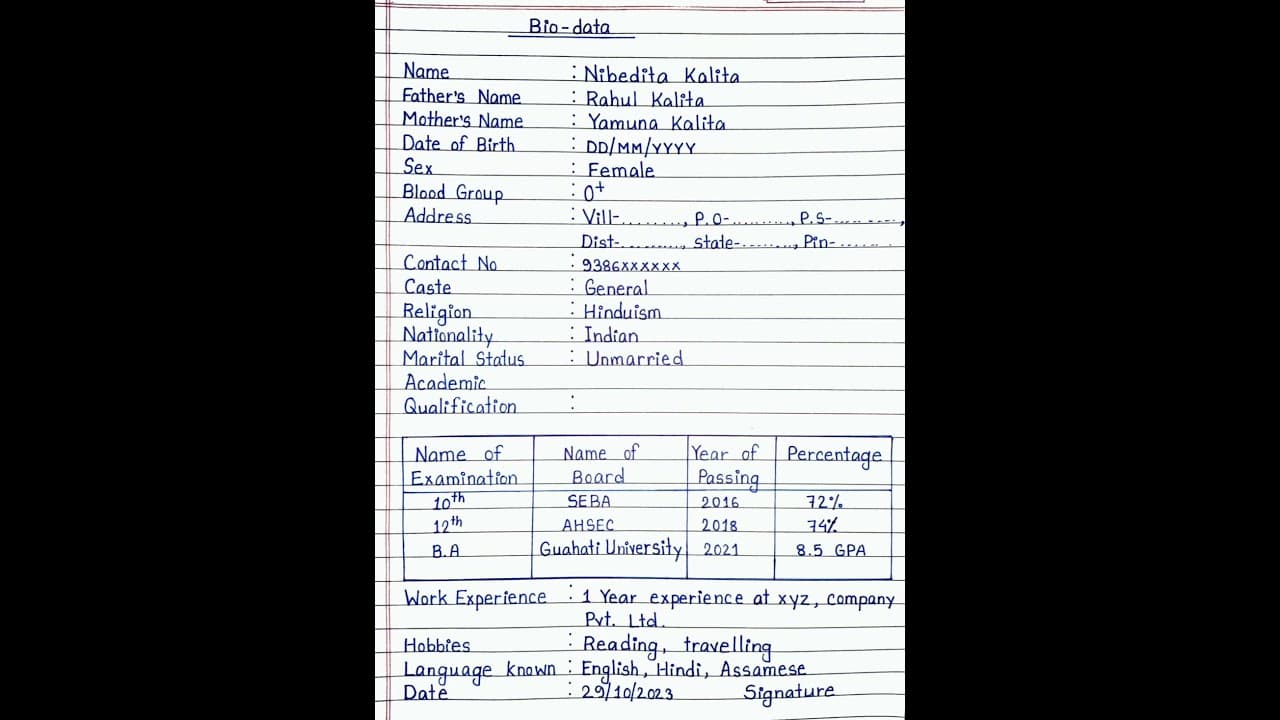 Bio-data
Name : Nibedita Kalita
Father's Name : Rahul Kalita
Mother's Name : Yamuna Kalita
Date of Birth : DD/MM/YYYY
Sex : Female
Blood Group : O+
Address : Vill-........., P.O-..........., P.S-..... ....,
Dist-.........., State-........, Pin-.......
Contact No : 9386xxxxxx
Caste : General
Religion : Hinduism
Nationality : Indian
Marital Status : Unmarried
Academic
Qualification :
Name of Name of Year of Percentage
Examination Board Passing
10th SEBA 2016 72%
12th AHSEC 2018 74%
B.A Guahati University 2021 8.5 GPA
Work Experience : 1 Year experience at xyz, company
Pvt. Ltd.
Hobbies : Reading, travelling
Language known : English, Hindi, Assamese
Date : 29/10/2023 Signature